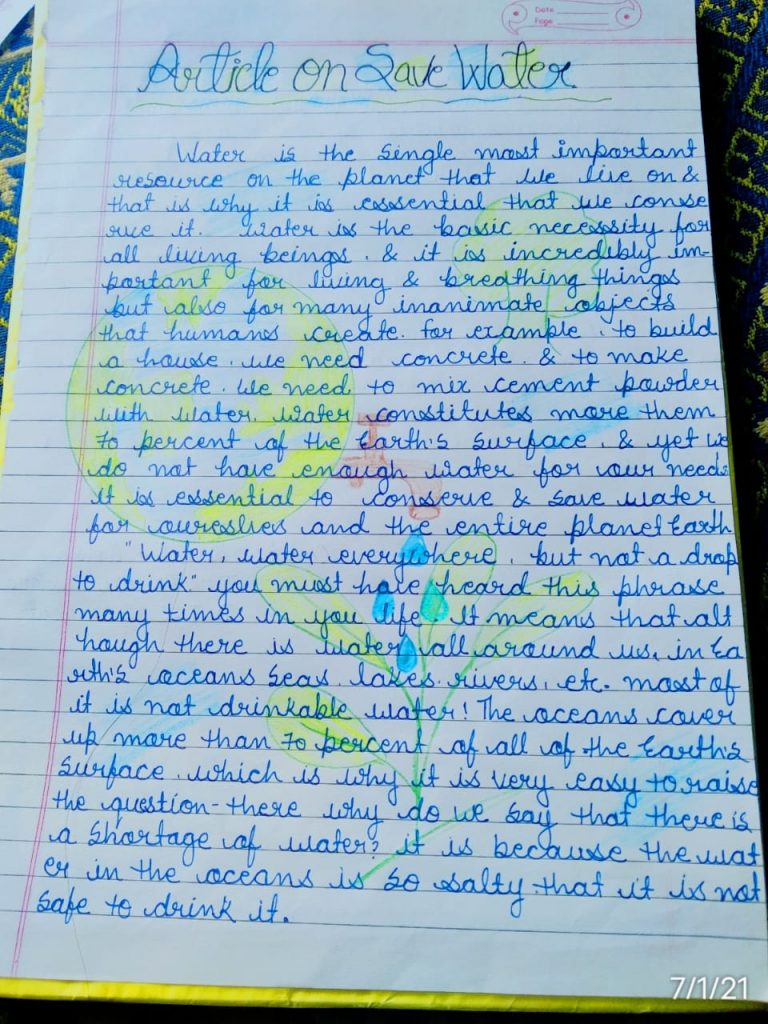 Date
Page
Article on Save Water
Water is the single most important
resource on the planet that we live on &
that is why it is essential that we conse
rve it. Water is the basic necessity for
all living beings. & it is incredibly im-
portant for living & breathing things
but also for many inanimate objects
that humans create. for example. to build
a house. we need concrete. & to make
concrete. we need to mix cement powder
with water. water constitutes more them
70 percent of the Earth's surface. & yet we
do not have enough water for our needs
it is essential to conserve & save water
for ourselves and the entire planet Earth
"Water, water everywhere, but not a drop
to drink" you must have heard this phrase
many times in you life. It means that alt
hough there is water all around us, in Ea
rth's oceans seas. lakes. rivers, etc. most of
it is not drinkable water! The oceans cover
up more than 70 percent of all of the Earth's
surface. which is why it is very easy to raise
the question- there why do we say that there is
a shortage of water? it is because the wat
er in the oceans is so salty that it is not
safe to drink it.
7/1/21